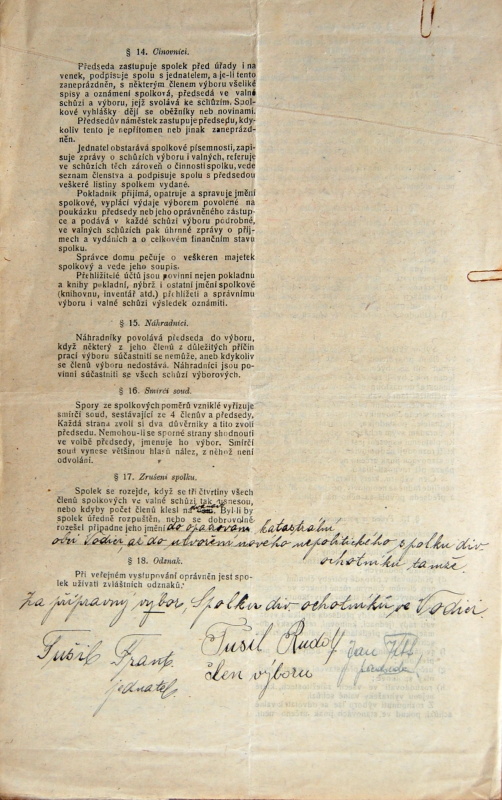 § 14. Činovníci.
Předseda zastupuje spolek před úřady i na
venek, podpisuje spolu s jednatelem, a je-li tento
zaneprázdněn, s některým členem výboru všeliké
spisy a oznámení spolková, předsedá ve valné
schůzi a výboru, jejž svolává ke schůzím. Spol-
kové vyhlášky dějí se oběžníky neb novinami.
Předsedův náměstek zastupuje předsedu, kdy-
koliv tento je nepřítomen neb jinak zanepráz-
dněn.
Jednatel obstarává spolkové písemnosti, zapi-
suje zprávy o schůzích výboru i valných, referuje
ve schůzích těch zároveň o činnosti spolku, vede
seznam členstva a podpisuje spolu s předsedou
veškeré listiny spolkem vydané.
Pokladník přijímá, opatruje a spravuje jmění
spolkové, vyplácí výdaje výborem povolené na
poukázku předsedy neb jeho oprávněného zástup-
ce a podává v každé schůzi výboru podrobné,
ve valných schůzích pak úhrnné zprávy o pří-
jmech a vydáních a o celkovém finančním stavu
spolku.
Správce domu pečuje o veškeren majetek
spolkový a vede jeho soupis.
Přehlížitelé účtů jsou povinni nejen pokladnu
a knihy pokladní, nýbrž i ostatní jmění spolkové
(knihovnu, inventář atd.) přehlížeti a správnímu
výboru i valné schůzi výsledek oznámiti.
§ 15. Náhradníci.
Náhradníky povolává předseda do výboru,
když některý z jeho členů z důležitých příčin
prací výboru súčastniti se nemůže, aneb kdykoliv
se členů výboru nedostává. Náhradníci jsou po-
vinni súčastniti se všech schůzí výborových.
§ 16. Smírčí soud.
Spory ze spolkových poměrů vzniklé vyřizuje
smírčí soud, sestávající ze 4 členův a předsedy.
Každá strana zvolí si dva důvěrníky a tito zvolí
předsedu. Nemohou-li se sporné strany shodnouti
ve volbě předsedy, jmenuje ho výbor. Smírčí
soud vynese většinou hlasů nález, z něhož není
odvolání.
§ 17. Zrušení spolku.
Spolek se rozejde, když se tři čtvrtiny všech
členů spolkových ve valné schůzi tak usnesou,
nebo kdyby počet členů klesl na Byl-li by
spolek úředně rozpuštěn, nebo se dobrovolně
rozešel připadne jeho jmění do opatrování katastrální
obci Vodici, až do utvoření nového nepolitického spolku div.
ochotníků tamže.
§ 18. Odznak.
Při veřejném vystupování oprávněn jest spo-
lek užívati zvláštních odznaků.
Za přípravný výbor „Spolku div. ochotníků ve Vodici.
Tušil Frant. Tušil Rudolf Jan
jednatel. člen výboru předseda